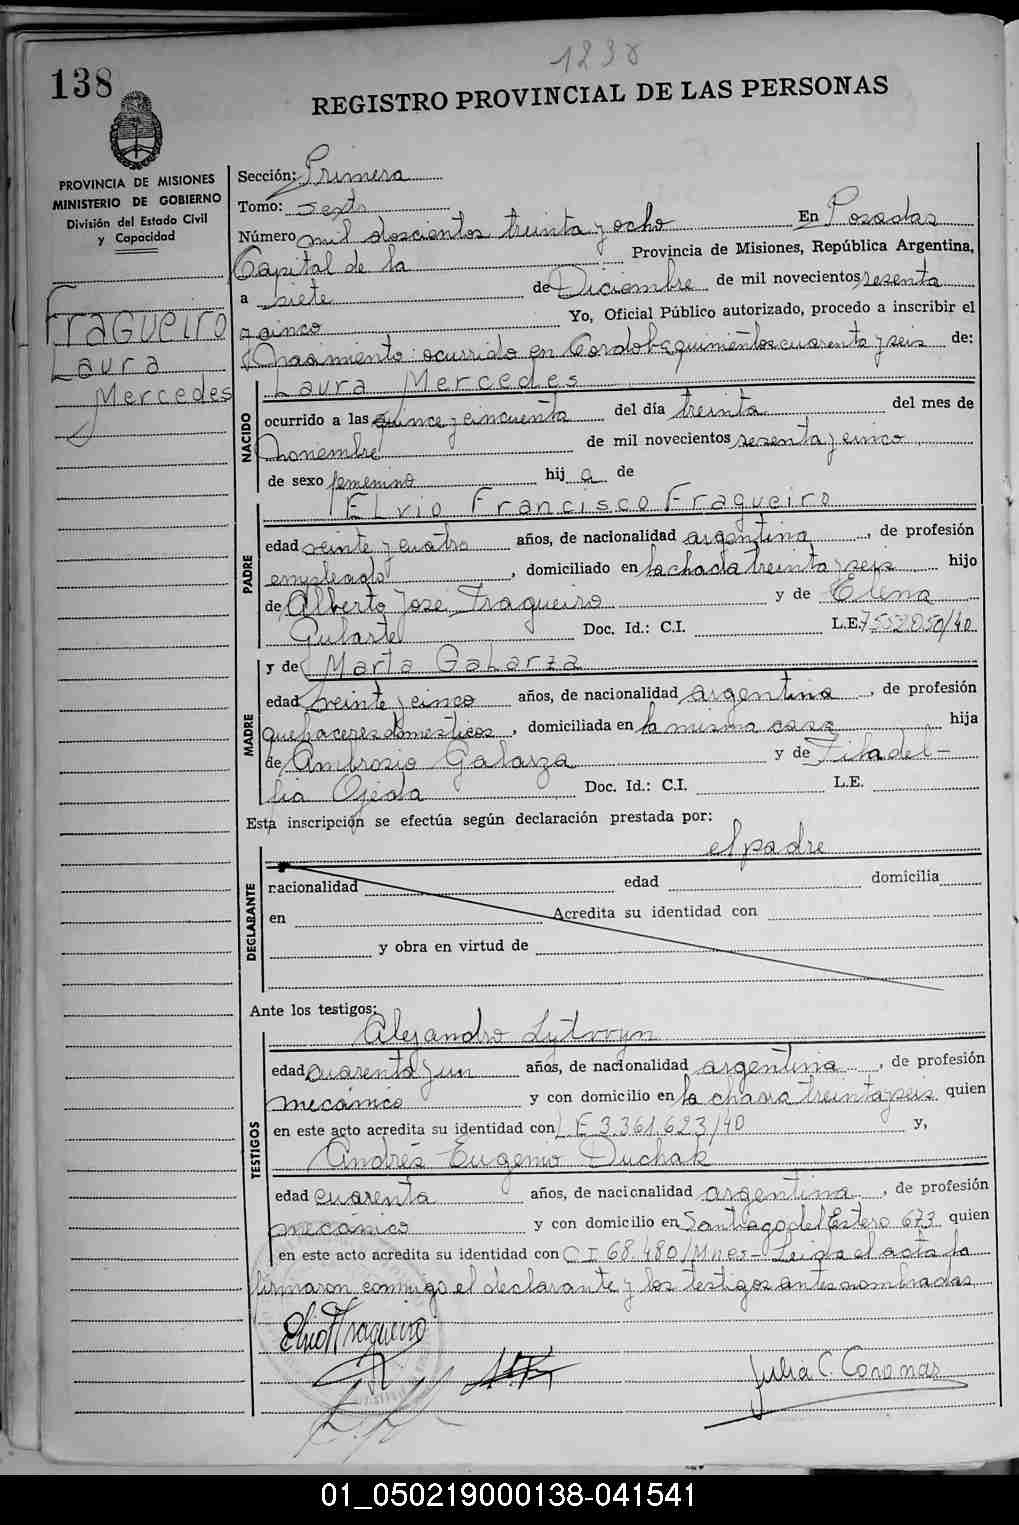 1238
138
REGISTRO PROVINCIAL DE LAS PERSONAS
PROVINCIA DE MISIONES
MINISTERIO DE GOBIERNO
División del Estado Civil
y Capacidad
Fragueiro
Laura
Mercedes
Sección: Primera
Tomo: sexto
Número mil doscientos treinta y ocho En Posadas
Capital de la Provincia de Misiones, República Argentina,
a siete de Diciembre de mil novecientos sesenta
y cinco Yo, Oficial Público autorizado, procedo a inscribir el
Nacimiento: ocurrido en Cordoba quinientos cuarenta y seis de:
NACIDO
Laura Mercedes
ocurrido a las quince y cincuenta del día treinta del mes de
noviembre de mil novecientos sesenta y cinco
de sexo femenino hij a de
PADRE
Elvio Francisco Fragueiro
edad veinte y cuatro años, de nacionalidad argentina, de profesión
empleado, domiciliado en la chacra treinta y seis hijo
de Alberto Jose Fragueiro y de Elena
Gularte Doc. Id.: C.I. L.E. 7552050/40
MADRE
y de Marta Galarza
edad veinte y cinco años, de nacionalidad argentina, de profesión
quehaceres domesticos, domiciliada en la misma casa hija
de Ambrosio Galarza y de Filadel-
fia Ojeda Doc. Id.: C.I. L.E.
Esta inscripción se efectúa según declaración prestada por:
el padre
DECLARANTE
nacionalidad edad domicilia
en Acredita su identidad con
y obra en virtud de
Ante los testigos:
TESTIGOS
Alejandro Lytvvyn
edad cuarenta y un años, de nacionalidad argentina, de profesión
mecánico y con domicilio en la chacra treinta y seis quien
en este acto acredita su identidad con L E 3.361.623/40 y,
Andrés Eugenio Duchak
edad cuarenta años, de nacionalidad argentina, de profesión
mecánico y con domicilio en Santiago del Estero 673 quien
en este acto acredita su identidad con C I 68.480/Mnes- Leida el acta la
firmaron conmigo el declarante y los testigos antes nombrados
Elvio F Fragueiro
Julia C. Coronas
01_050219000138-041541